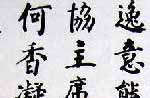 逸意
協主席
何香凝